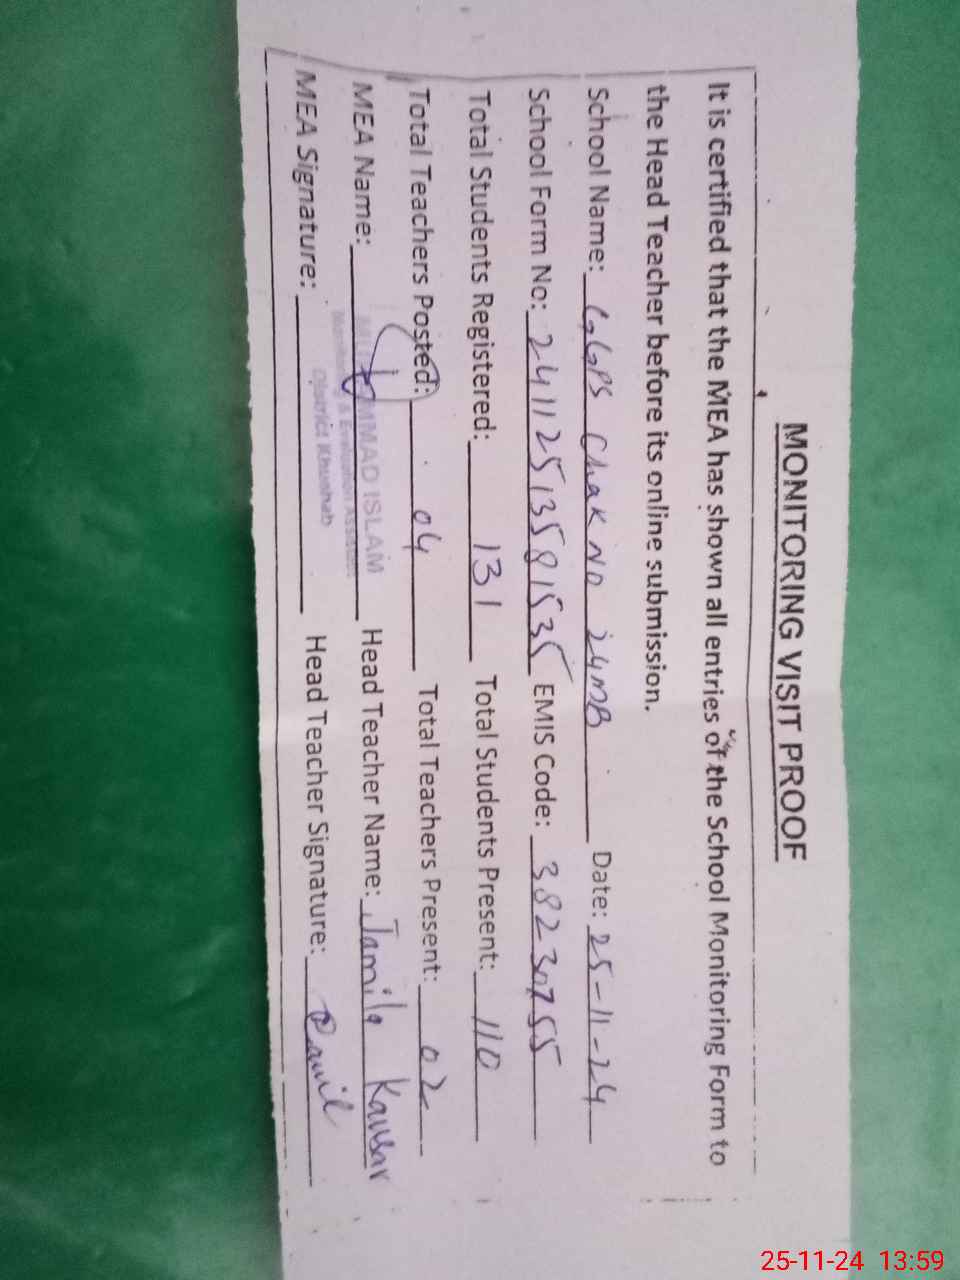 MONITORING VISIT PROOF
It is certified that the MEA has shown all entries of the School Monitoring Form to
the Head Teacher before its online submission.
School Name: GGPS Chak No 24MB Date: 25-11-24
School Form No: 24112513581535 EMIS Code: 38230755
Total Students Registered: 131 Total Students Present: 110
Total Teachers Posted: 04 Total Teachers Present: 02
MEA Name: MUHAMMAD ISLAM Head Teacher Name: Jamila Kausar
Monitoring & Evaluation Assistant
District Khushab
MEA Signature: Head Teacher Signature:
25-11-24 13:59